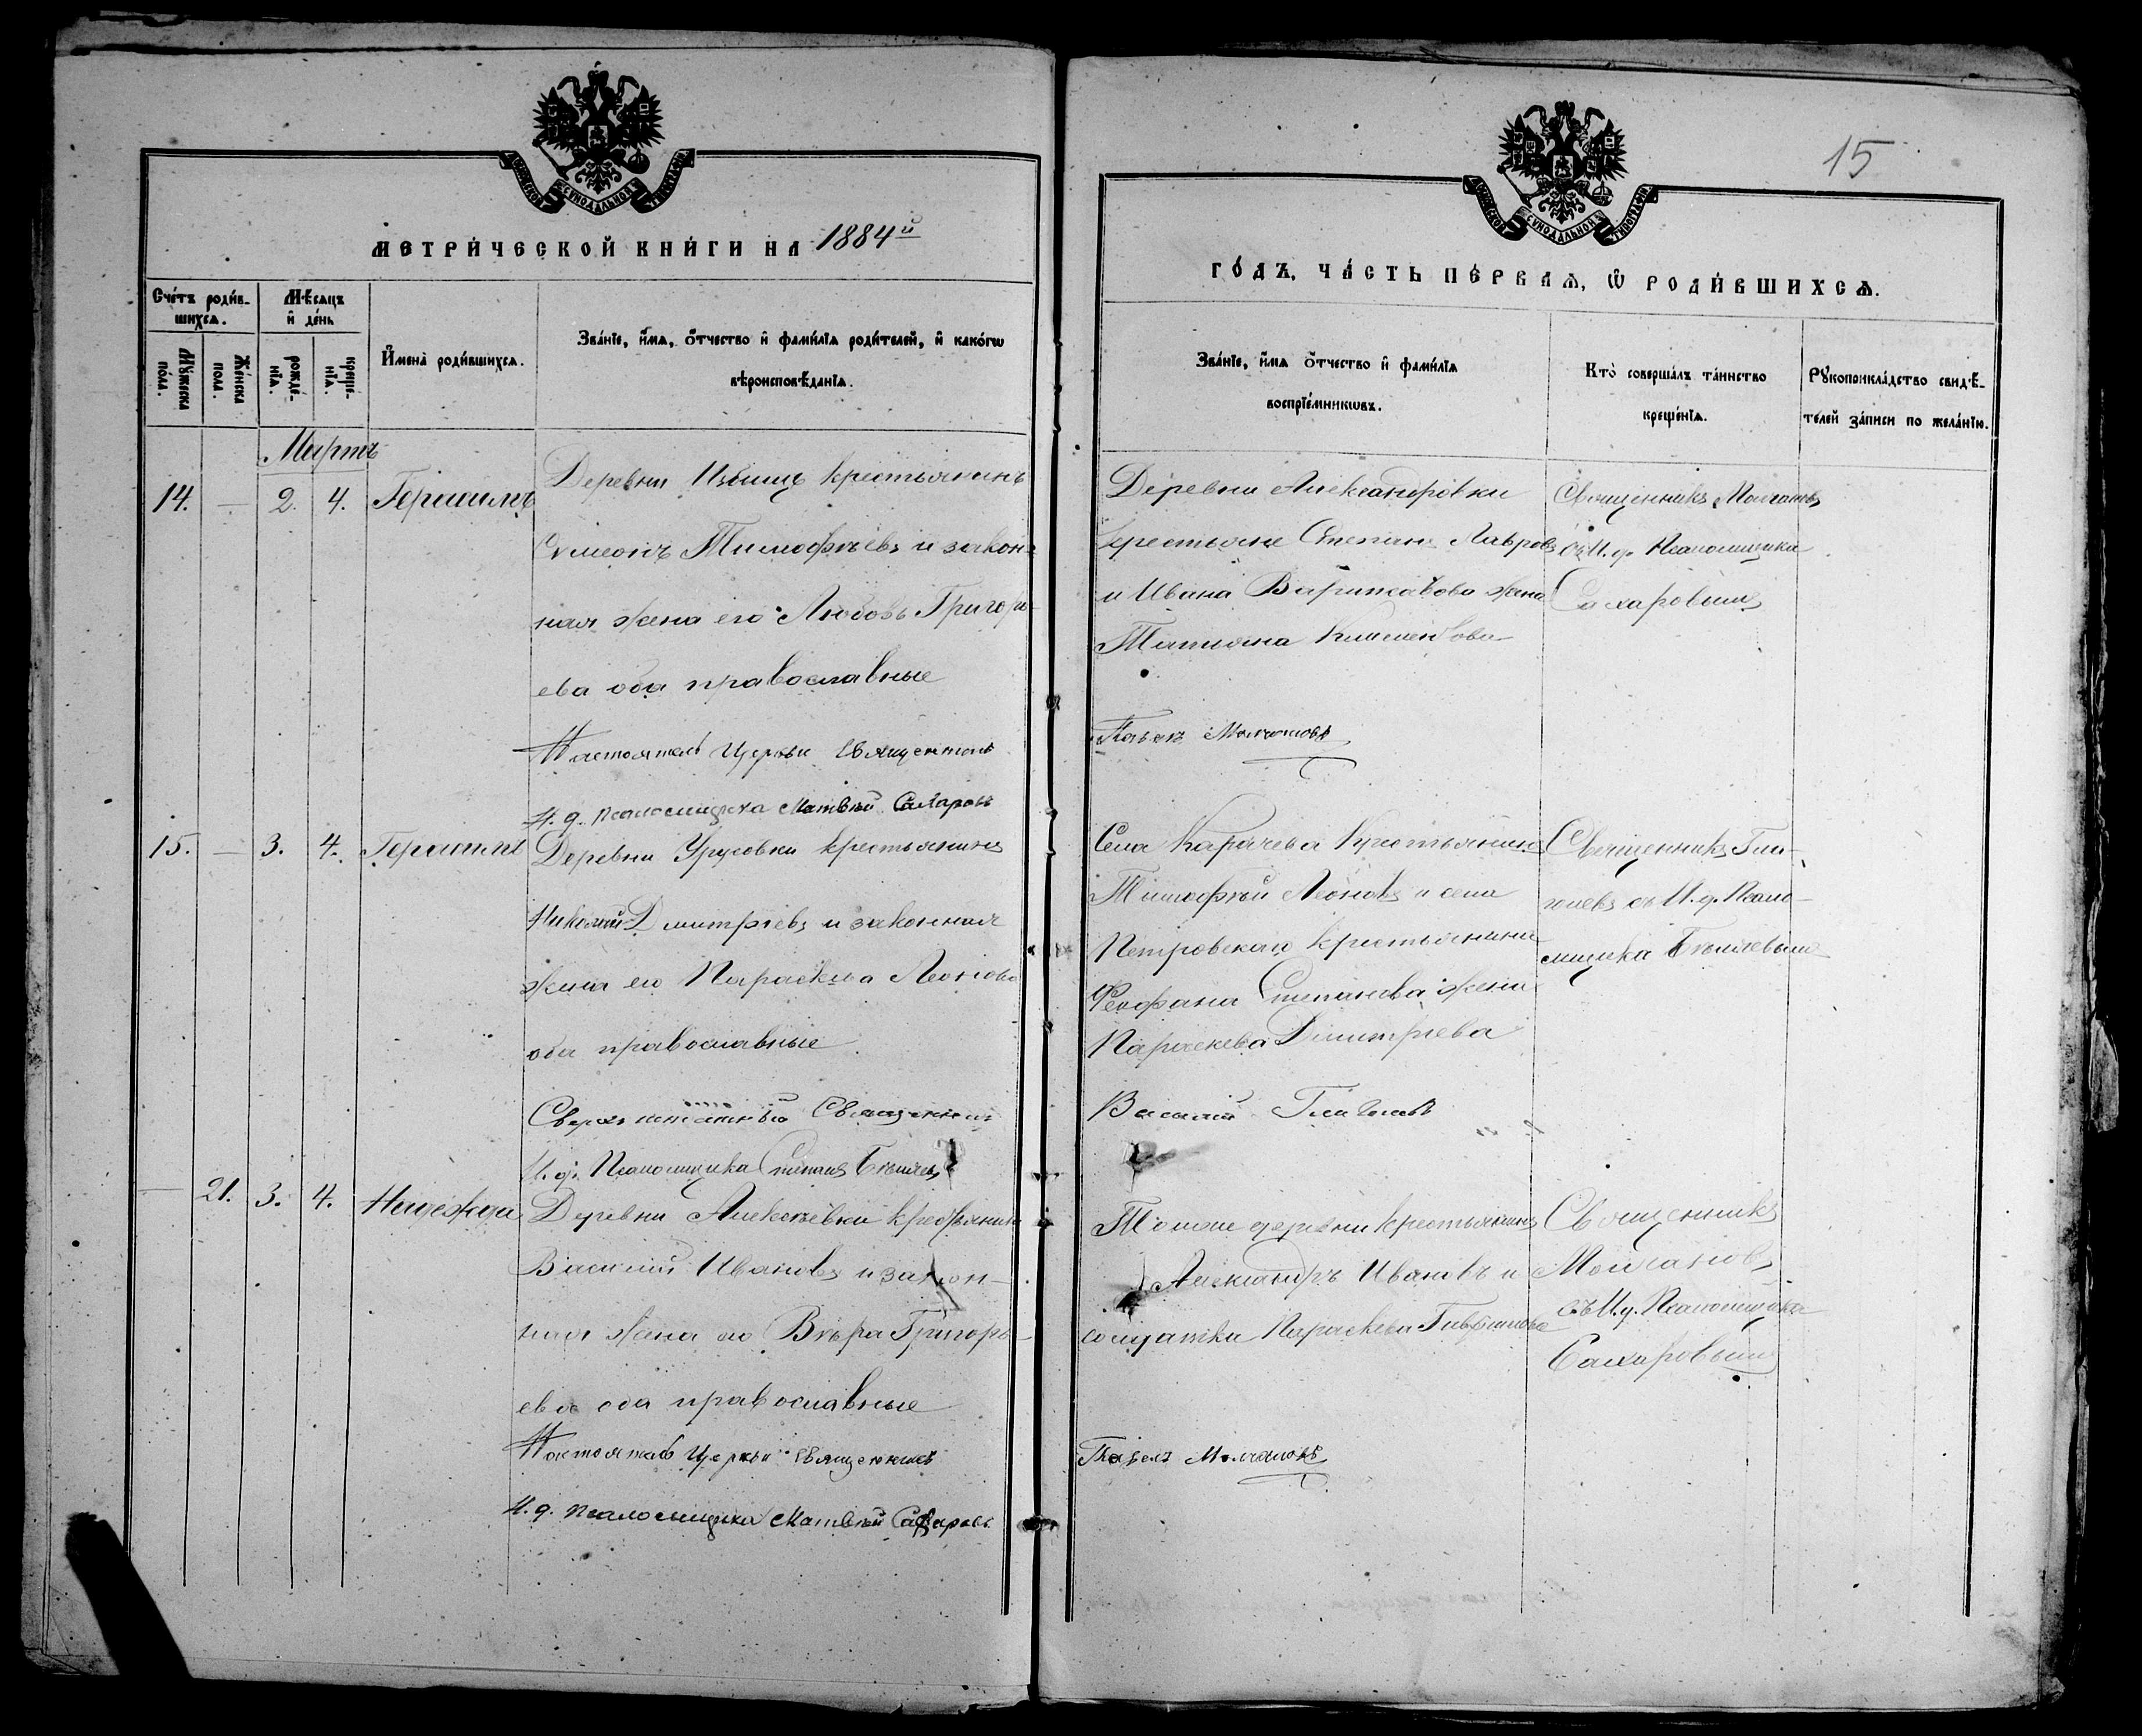 15
СИНОДАЛЬНОЙ
ТИПОГРАФІИ
МЕТРИ́ЧЕСКОЙ КНИ́ГИ НА 1884й
ГО́ДЪ, ЧА́СТЬ ПЕ́РВАѦ, Ѡ҆ РОДИ́ВШИХСѦ.
Сче́тъ роди́в-
шихсѧ.
Мѣ́сѧцъ
и҆ де́нь
Мꙋ́жеска
по́ла.
Же́нска
пола.
рожде́-
нїѧ.
креще́-
нїѧ.
И҆мена̀ роди́вшихсѧ.
Зва́нїе, и҆́мѧ, ѻ҆́тчество и҆ фами́лїѧ роди́телей, и҆ како́гѡ
вѣроисповѣ́данїѧ.
Зва́нїе, и҆́мѧ ѻ҆́тчество и҆ фами́лїѧ
воспрїе́мникѡвъ.
Кто̀ соверша́лъ та́инство
креще́нїѧ.
Рꙋкоприкла́дство свидѣ́-
телей за́писи по жела́нїю.
Мартъ
14. — 2. 4. Герасимъ
Деревни Избищъ крестьянинъ
Симеонъ Тимофѣевъ и закон-
ная жена его Любовь Григорь-
ева оба православные
Настоятель Церкви Священникъ
И. д. псаломщика Матвѣй Сахаровъ
Деревни Александровки
крестьяне Степанъ Лавровъ
и Ивана жена
Татиана
Павелъ Молчановъ
Священникъ Молчановъ
съ И. д. Псаломщика
Сахаровымъ
15. — 3. 4. Герасимъ
Деревни Урусовки крестьянинъ
Николай Дмитріевъ и законная
жена его Параскева Леонова
оба православные
Сверхштатный Священникъ
И. д. Псаломщика Степанъ Бѣляевъ
Села Карачева Крестьянинъ
Тимофѣй Леоновъ и села
Петровскаго крестьянина
Феофана Степанова жена
Параскева Димитріева
Василій Глаголевъ
Священникъ Гла-
голевъ съ И. д. Псало-
мщика Бѣляевымъ
— 21. 3. 4. Надежда
Деревни Алексѣевки крестьянинъ
Василій Ивановъ и закон-
ная жена его Вѣра Григорь-
ева оба православные
Настоятель Церкви Священникъ
И. д. псаломщика Матвѣй Сахаровъ
Тойже деревни крестьянинъ
Александръ Ивановъ и
солдатка Параскева
Павелъ Молчановъ
Священникъ
Молчановъ
съ И. д. Псаломщика
Сахаровымъ